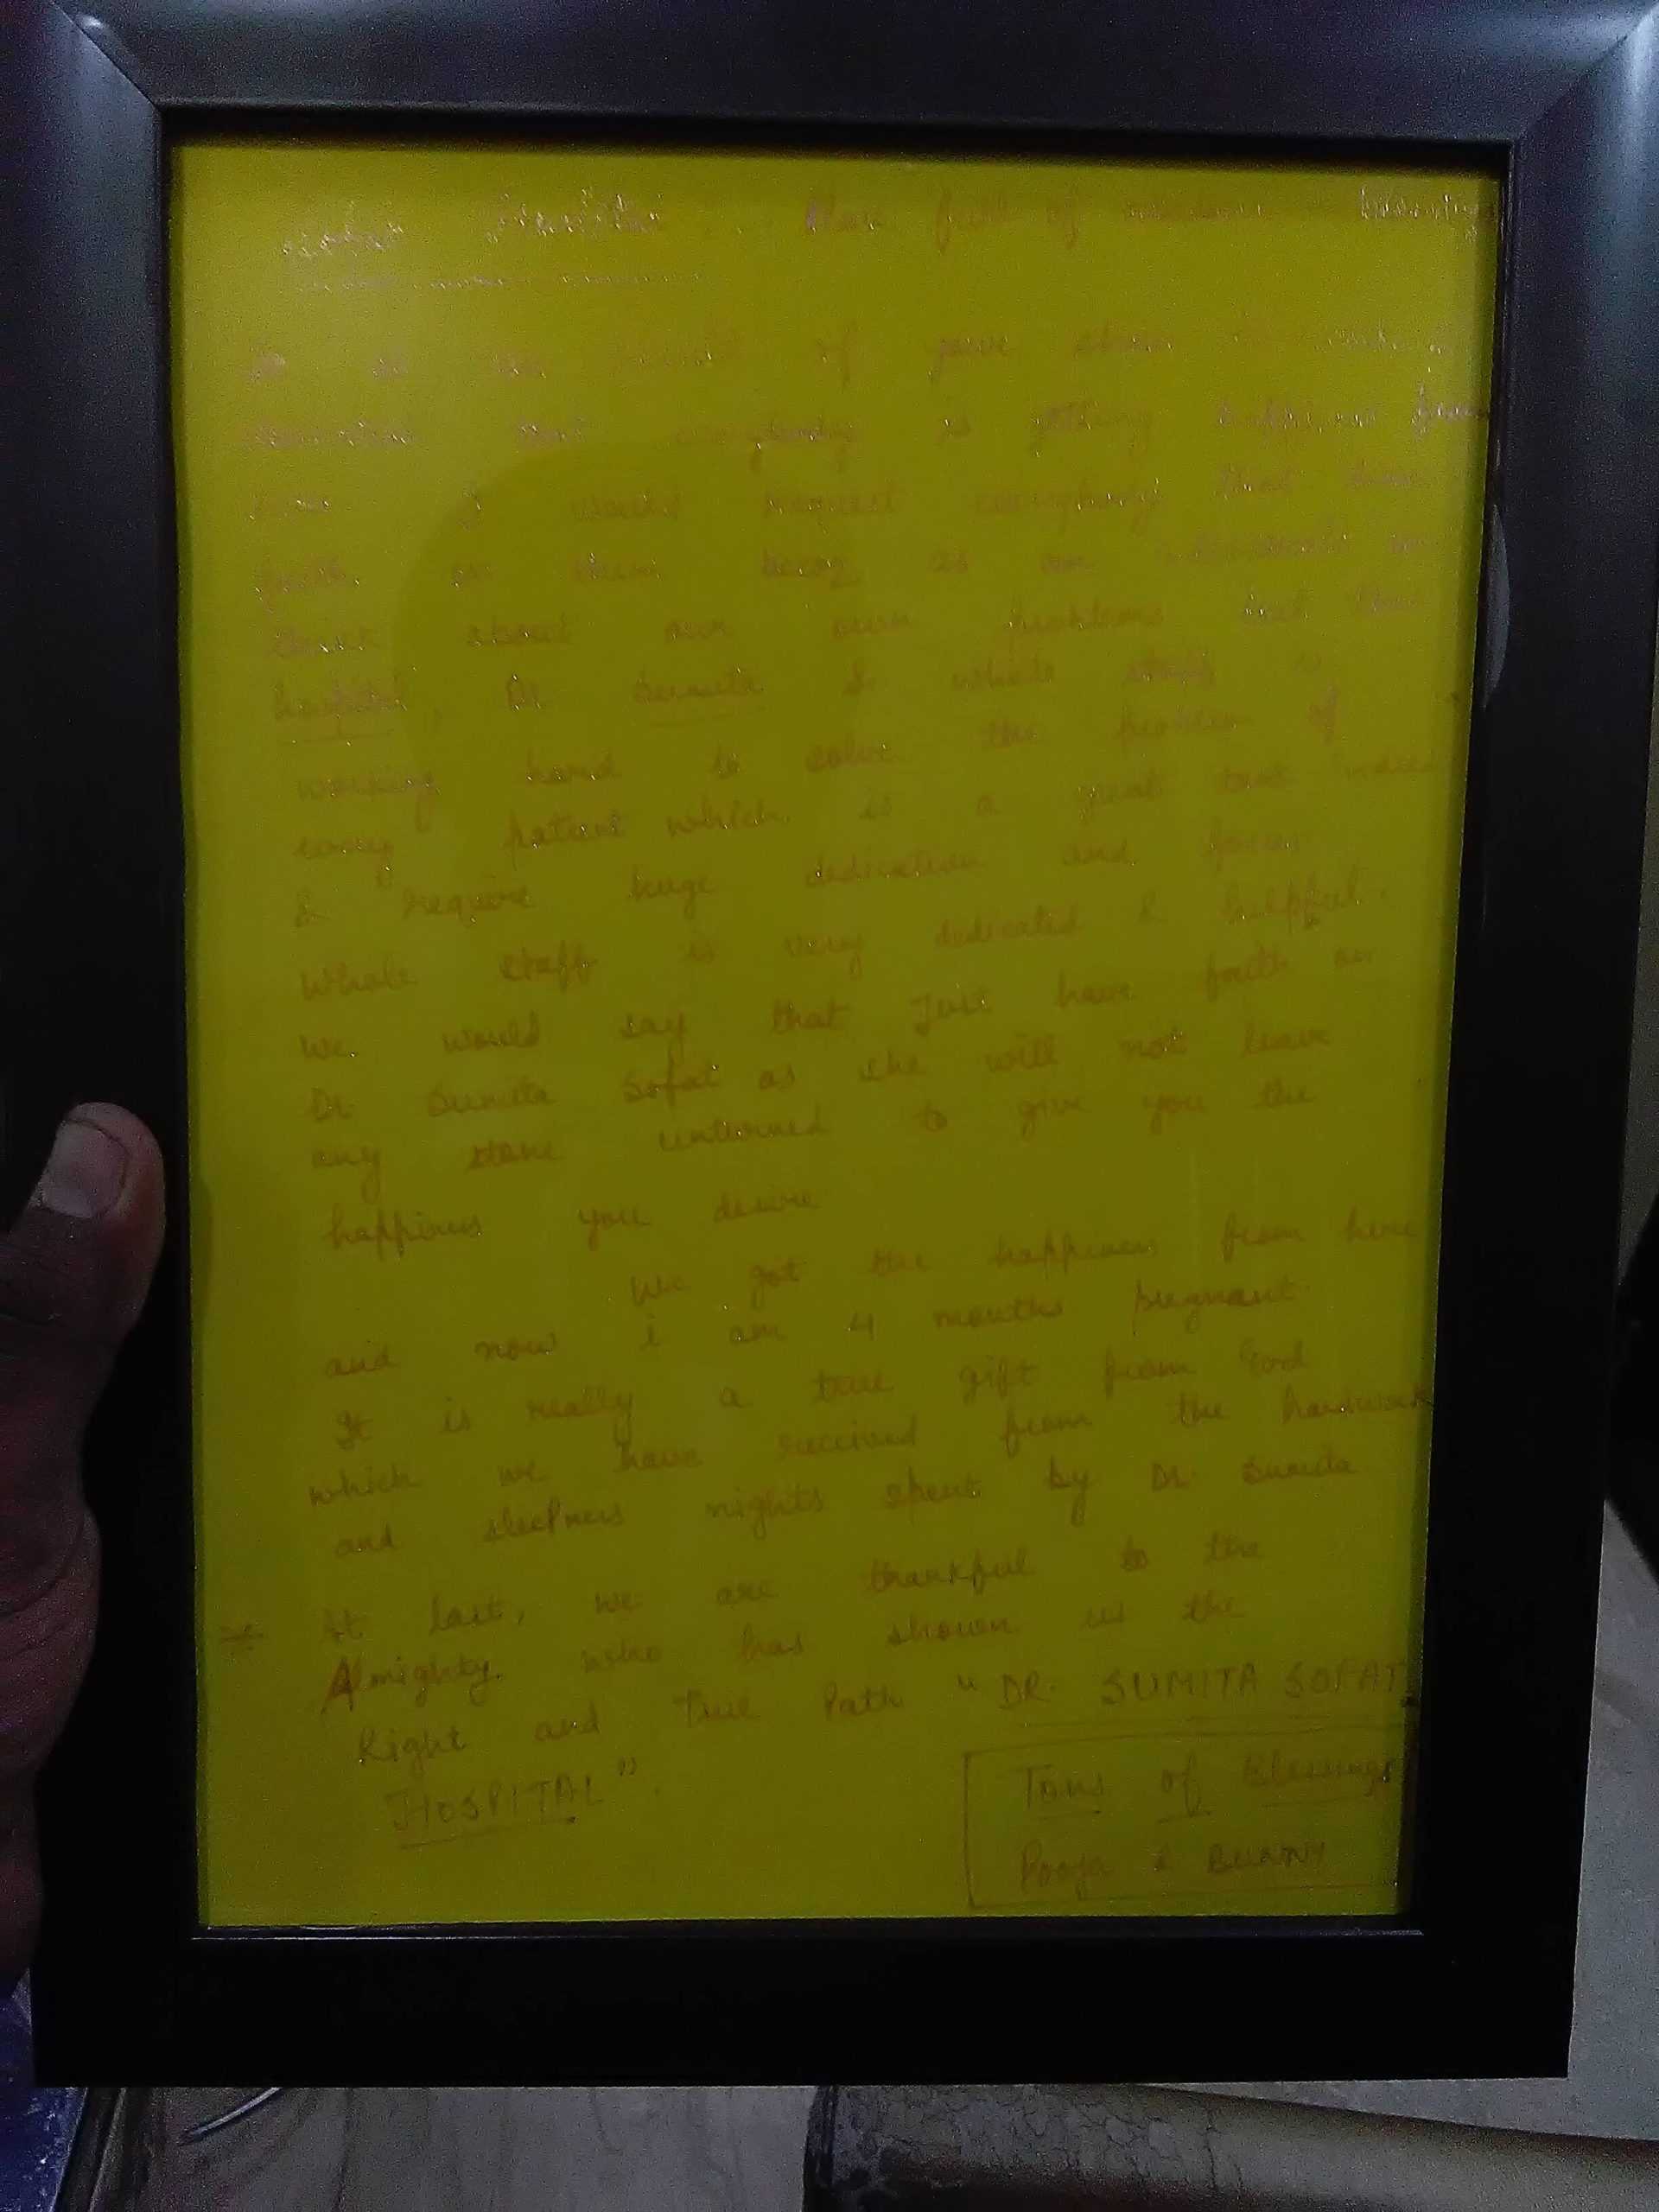 Sofat Hospital : Place full of
of pure
that everybody is getting happiness from
here I would request everybody that have
faith on them being as an
think about our own problems but this
hospital, Dr Sumita & whole staff is
working hard to solve the problem of
every patient which is a great task indeed
& require huge dedication and focus.
Whole staff is very dedicated & helpful.
We would say that Just have faith on
Dr Sumita Sofat as she will not leave
any stone unturned to give you the
happiness you desire
We got the happiness from here
and now i am 4 months pregnant.
It is really a true gift from God
which we have received from the hardwork
and sleepness nights spent by Dr. Sumita
At last, we are thankful to the
Almighty who has shown us the
Right and True Path "DR. SUMITA SOFAT
HOSPITAL".
Tons of Blessings
Pooja & BUNNY